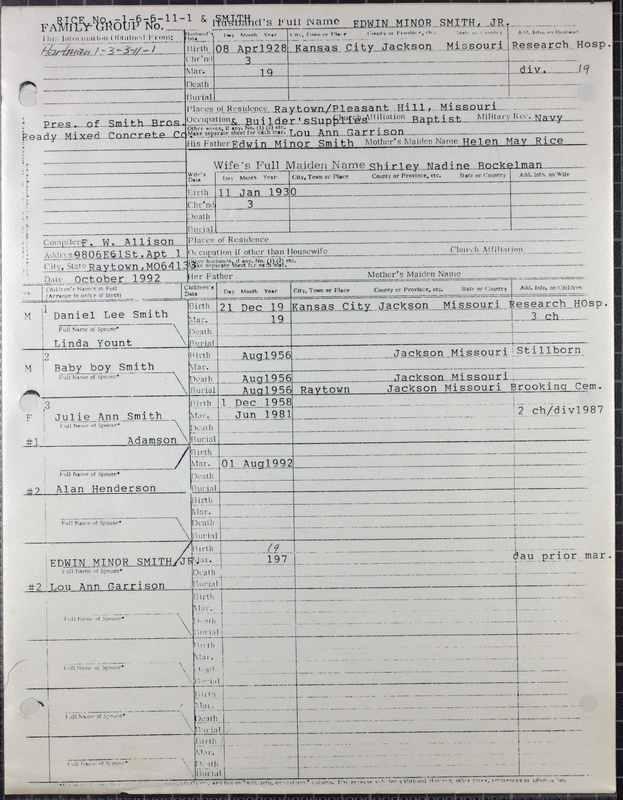 RICE No. 1-6-6-11-1 & SMITH
FAMILY GROUP No. Husband's Full Name EDWIN MINOR SMITH, JR.
This Information Obtained From: Husband's Data Day Month Year City, Town or Place County or Province, etc. State or Country Add. Info. on Husband
Hartman 1-3-3-11-1 Birth 08 Apr1928 Kansas City Jackson Missouri Research Hosp.
Chr'nd 3
Mar. 19 div. 19
Death
Burial
Places of Residence Raytown/Pleasant Hill, Missouri
Pres. of Smith Bros. Occupation & Builder'sSupplies Church Affiliation Baptist Military Rec. Navy
Ready Mixed Concrete Co Other wives, if any. No. (1) (2) etc. Make separate sheet for each mar. Lou Ann Garrison
His Father Edwin Minor Smith Mother's Maiden Name Helen May Rice
Wife's Full Maiden Name Shirley Nadine Bockelman
Wife's Data Day Month Year City, Town or Place County or Province, etc. State or Country Add. Info. on Wife
Birth 11 Jan 1930
Chr'nd 3
Death
Burial
Compiler F. W. Allison Places of Residence
Address 9806E61St.Apt 1 Occupation if other than Housewife Church Affiliation
City, State Raytown,MO64133 Other husbands, if any. No. (1) (2) etc. Make separate sheet for each mar.
Date October 1992 Her Father Mother's Maiden Name
Children's Names in Full (Arrange in order of birth) Children's Data Day Month Year City, Town or Place County or Province, etc. State or Country Add. Info. on Children
1 Birth 21 Dec 19 Kansas City Jackson Missouri Research HOsp.
M Daniel Lee Smith Mar. 19 3 ch
Full Name of Spouse* Death
Linda Yount Burial
2 Birth Aug1956 Jackson Missouri Stillborn
M Baby boy Smith Mar.
Full Name of Spouse* Death Aug1956 Jackson Missouri
Burial Aug1956 Raytown Jackson Missouri Brooking Cem.
3 Birth 1 Dec 1958
F Julie Ann Smith Mar. Jun 1981 2 ch/div1987
Full Name of Spouse* Death
#1 Adamson Burial
Birth
Mar. 01 Aug1992
Full Name of Spouse* Death
#2 Alan Henderson Burial
Birth
Mar.
Full Name of Spouse* Death
Burial
Birth 19
EDWIN MINOR SMITH,JR. Mar. 197 dau prior mar.
Full Name of Spouse* Death
#2 Lou Ann Garrison Burial
Birth
Mar.
Full Name of Spouse* Death
Burial
Birth
Mar.
Full Name of Spouse* Death
Burial
Birth
Mar.
Full Name of Spouse* Death
Burial
Birth
Mar.
Full Name of Spouse* Death
Burial